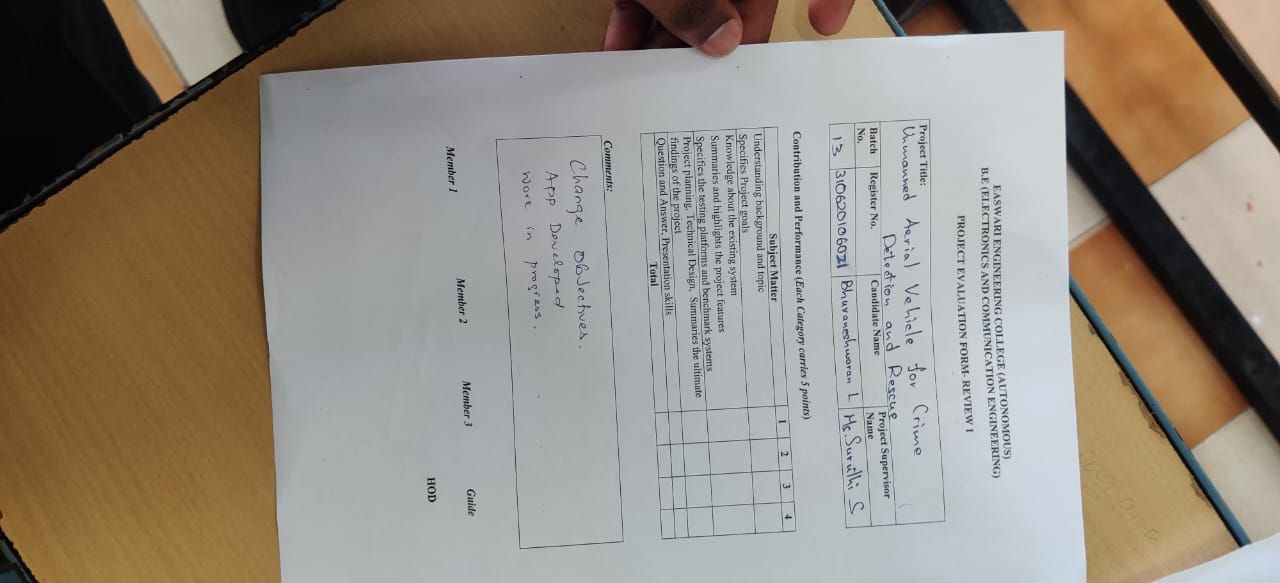 EASWARI ENGINEERING COLLEGE (AUTONOMOUS)
B.E (ELECTRONICS AND COMMUNICATION ENGINEERING)
PROJECT EVALUATION FORM- REVIEW I
Project Title:
Unmanned Aerial Vehicle for Crime
Detection and Rescue
Batch No. Register No. Candidate Name Project Supervisor Name
13 310620106021 Bhuvaneshwaran L Ms. Suruthi S
Contribution and Performance (Each Category carries 5 points)
Subject Matter 1 2 3 4
Understanding background and topic
Specifies Project goals
Knowledge about the existing system
Summaries and highlights the project features
Specifies the testing platforms and benchmark systems
Project planning, Technical Design, Summaries the ultimate
findings of the project
Question and Answer, Presentation skills
Total
Comments:
Change Objectives.
App Developed
Work in progress.
Member 1 Member 2 Member 3 Guide
HOD